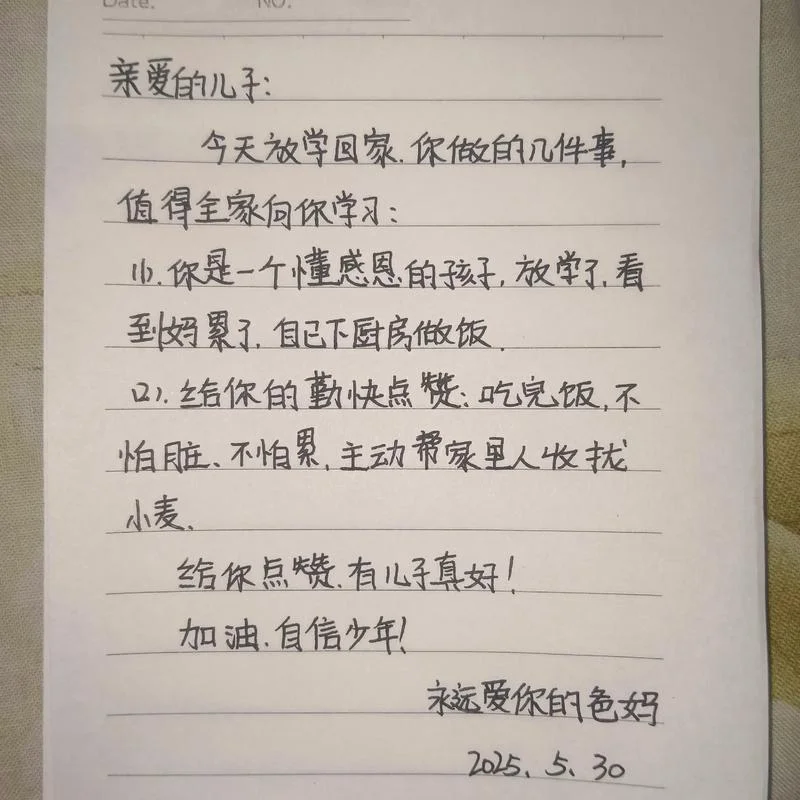 Date. NO.
亲爱的儿子：
今天放学回家.你做的几件事,
值得全家向你学习：
(1).你是一个懂感恩的孩子,放学了,看
到妈累了,自己下厨房做饭.
(2).给你的勤快点赞:吃完饭,不
怕脏、不怕累,主动帮家里人收拢
小麦.
给你点赞.有儿子真好!
加油.自信少年!
永远爱你的爸妈
2025、5、30